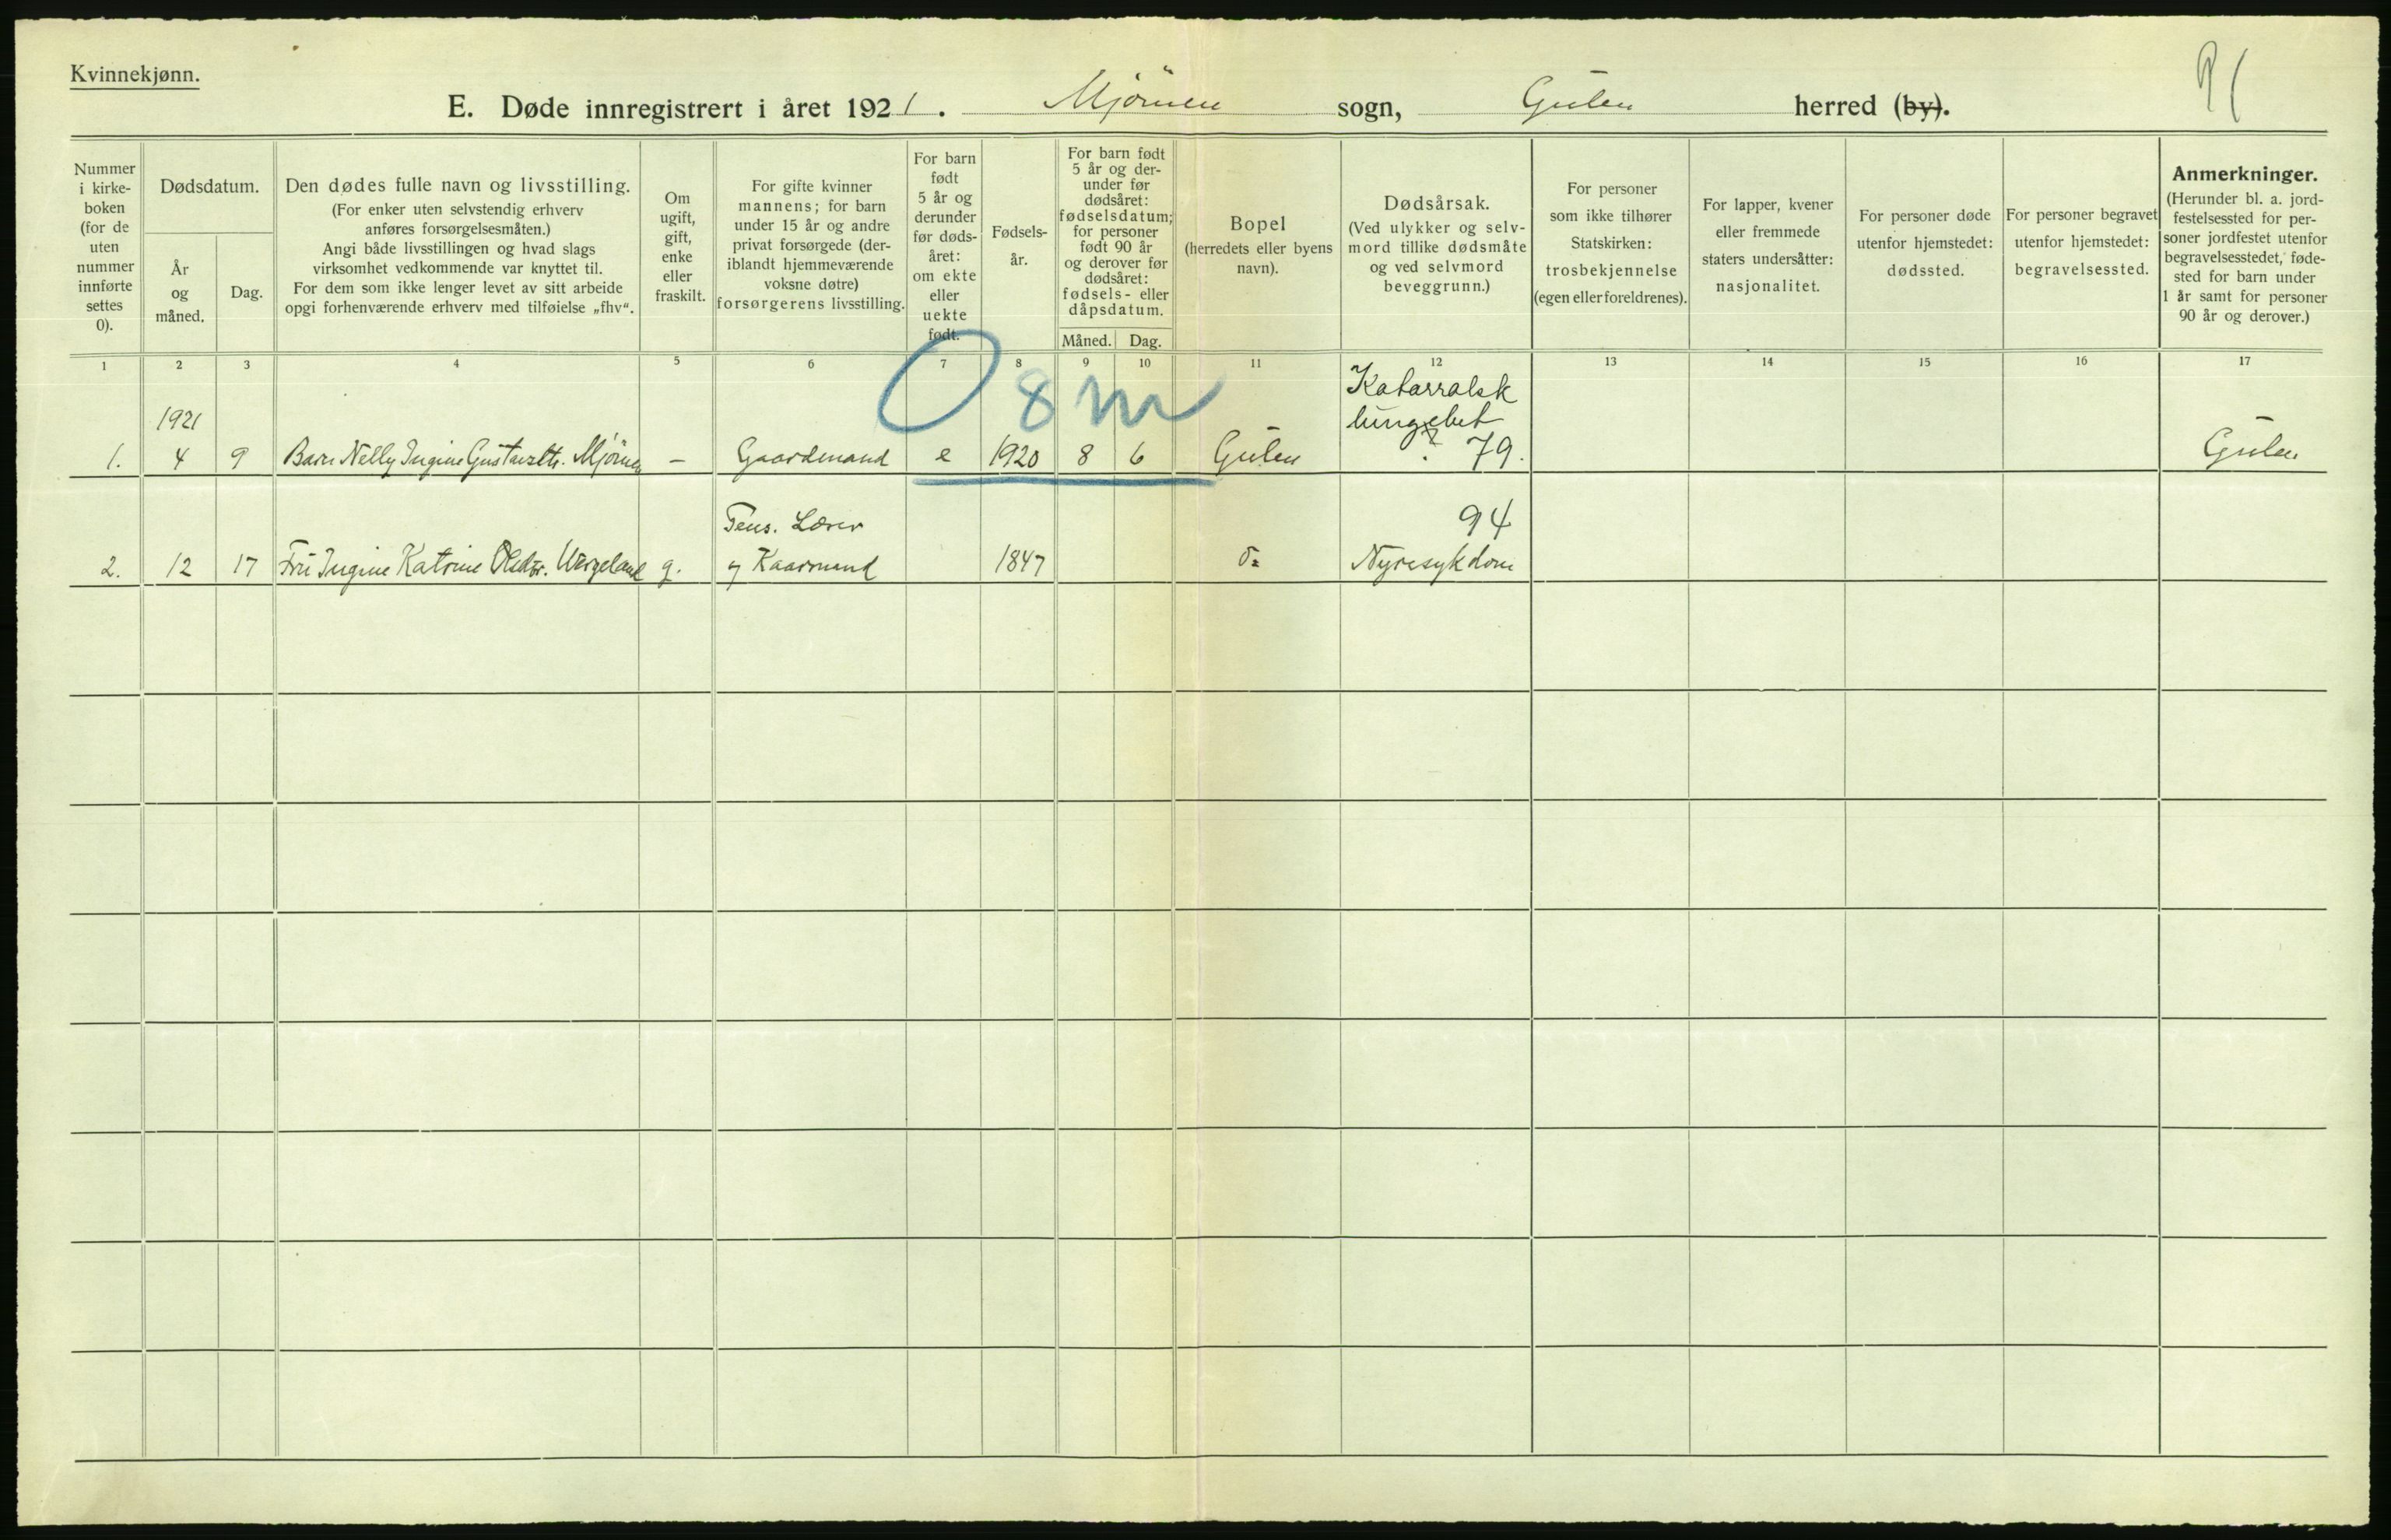 Kvinnekjønn.
E. Døde innregistrert i året 1921. Mjömen sogn, Gulen herred (by).
Nummer
i kirke-
boken
(for de
uten
nummer
innførte
settes
0).
Dødsdatum.
År
og
måned.
Dag.
Den dødes fulle navn og livsstilling.
(For enker uten selvstendig erhverv
anføres forsørgelsesmåten.)
Angi både livsstillingen og hvad slags
virksomhet vedkommende var knyttet til.
For dem som ikke lenger levet av sitt arbeide
opgi forhenværende erhverv med tilføielse „fhv“.
Om
ugift,
gift,
enke
eller
fraskilt.
For gifte kvinner
mannens; for barn
under 15 år og andre
privat forsørgede (der-
iblandt hjemmeværende
voksne døtre)
forsørgerens livsstilling.
For barn
født
5 år og
derunder
før døds-
året:
om ekte
eller
uekte
født.
Fødsels-
år.
For barn født
5 år og der-
under før
dødsåret:
fødselsdatum;
for personer
født 90 år
og derover før
dødsåret:
fødsels- eller
dåpsdatum.
Måned. Dag.
Bopel
(herredets eller byens
navn).
Dødsårsak.
(Ved ulykker og selv-
mord tillike dødsmåte
og ved selvmord
beveggrunn.)
For personer
som ikke tilhører
Statskirken:
trosbekjennelse
(egen eller foreldrenes).
For lapper, kvener
eller fremmede
staters undersåtter:
nasjonalitet.
For personer døde
utenfor hjemstedet:
dødssted.
For personer begravet
utenfor hjemstedet:
begravelsessted.
Anmerkninger.
(Herunder bl. a. jord-
festelsessted for per-
soner jordfestet utenfor
begravelsesstedet, føde-
sted for barn under
1 år samt for personer
90 år og derover.)
1 2 3 4 5 6 7 8 9 10 11 12 13 14 15 16 17
0 8 m
Katarralsk
1921 lungebet
1. 4 9 Barn Nelly Ingine Gustavsdtr. Mjömen — Gaardmand e 1920 8 6 Gulen ? 79. Gulen
Pens. Lærer 94
2. 12 17 Fru Ingine Katrine Olsdtr. Wergeland g. og Kaarmand 1847 do Nyresykdom